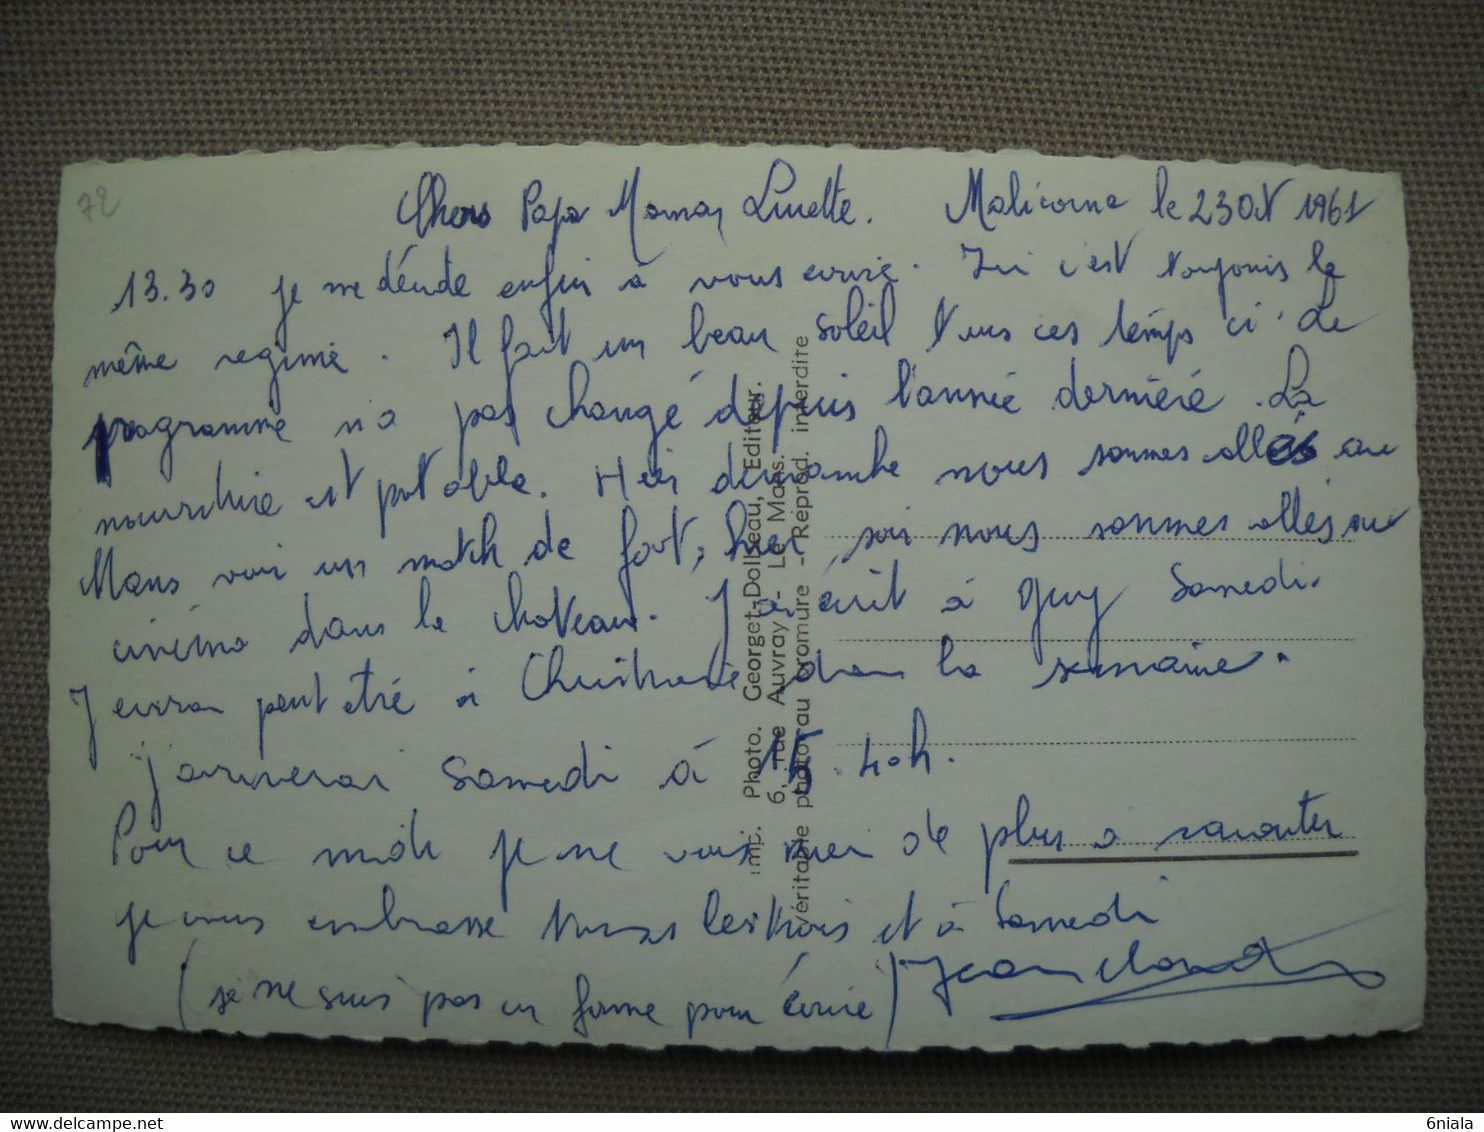 72
Chers Papa Maman Linette. Malicorne le 23 Oct 1961
13.30 je me décide enfin à vous ecrire. Ici c'est toujours le
même regime. Il fait un beau soleil tous ces temps ci. Le
programme n'a pas changé depuis l'année dernière. La
nourriture est potable. Hier dimanche nous sommes allés au
Mans voir un match de foot, hier soir nous sommes allés au
cinéma dans le chateau. J'ai écrit à Guy Samedi.
J'ecrirai peut etre à Christiane dans la semaine.
j'arriverai Samedi à 15.40h.
Pour ce midi je ne vois rien de plus a raconter
je vous embrasse tous les trois et à Samedi
(je ne suis pas en forme pour écrire) Jean Claude
Imp. Photo. Georget-Doliseau, Editeur.
6, rue Auvray - Le Mans.
Véritable photo au bromure - Reprod. interdite
delcampe.net
6niala